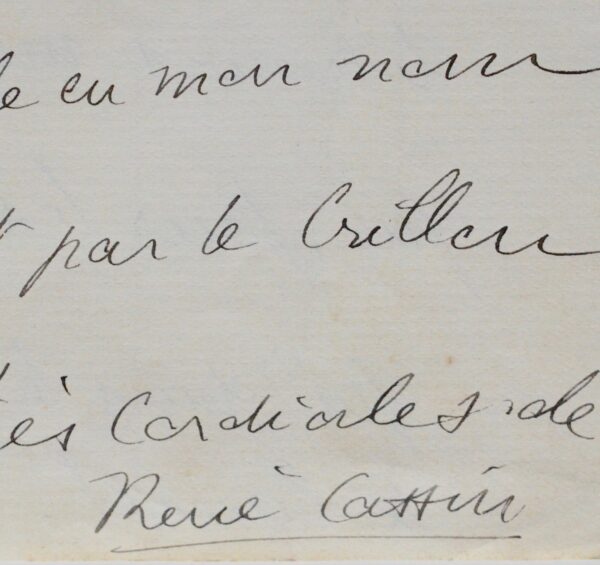 le en mon nom
par le Crillon
très Cordiales de
René Cassin